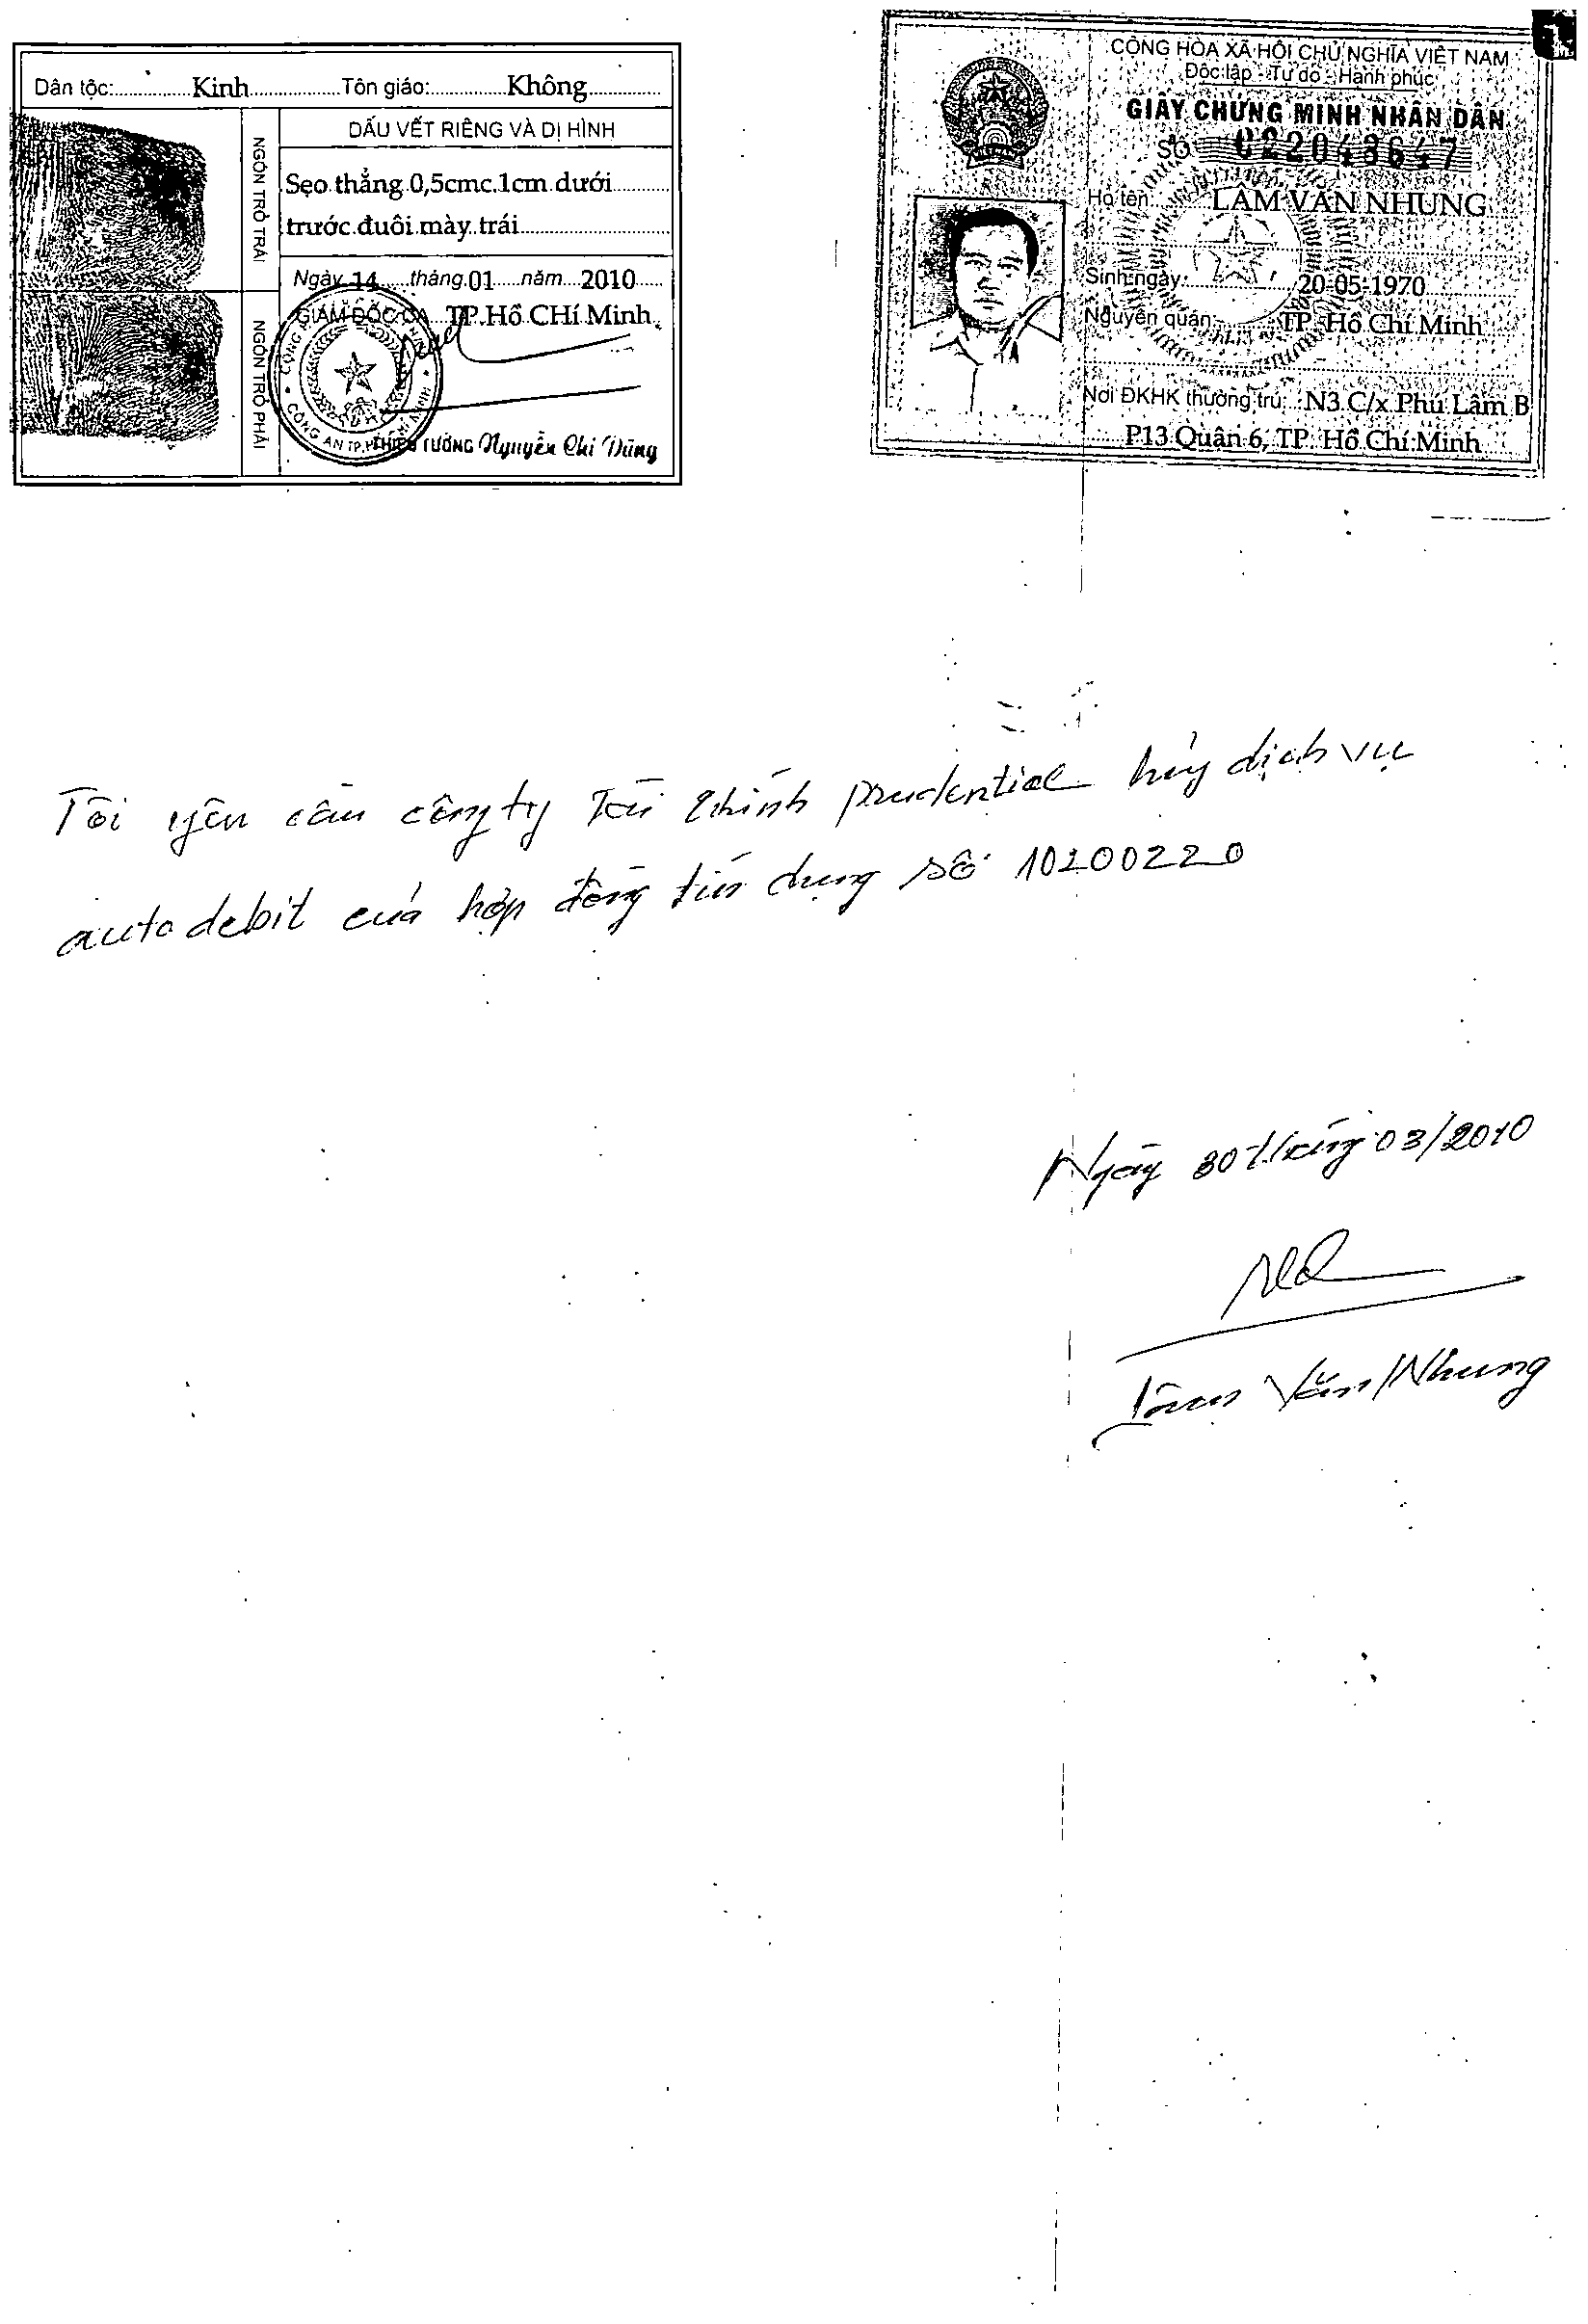 Dân tộc: Kinh Tôn giáo: Không
NGÓN TRỎ TRÁI
NGÓN TRỎ PHẢI
DẤU VẾT RIÊNG VÀ DỊ HÌNH
Sẹo thẳng 0,5cmc.1cm dưới
trước đuôi mày trái
Ngày 14 tháng 01 năm 2010
GIÁM ĐỐC CA TP.Hồ CHí Minh
CÔNG AN TP.HỒ CHÍ MINH
THIẾU TƯỚNG Nguyễn Chí Dũng
CỘNG HÒA XÃ HỘI CHỦ NGHĨA VIỆT NAM
Độc lập - Tự do - Hạnh phúc
GIẤY CHỨNG MINH NHÂN DÂN
SỐ 022043647
Họ tên: LÂM VĂN NHUNG
Sinh ngày: 20-05-1970
Nguyên quán: TP. Hồ Chí Minh
Nơi ĐKHK thường trú: N3 C/x Phú Lâm B
P13 Quận 6, TP. Hồ Chí Minh
Tôi yêu cầu công ty Tài chính prudential hủy dịch vụ
auto debit của hợp đồng tín dụng số 10200220
Ngày 30 tháng 03/2010
Lâm Văn Nhung